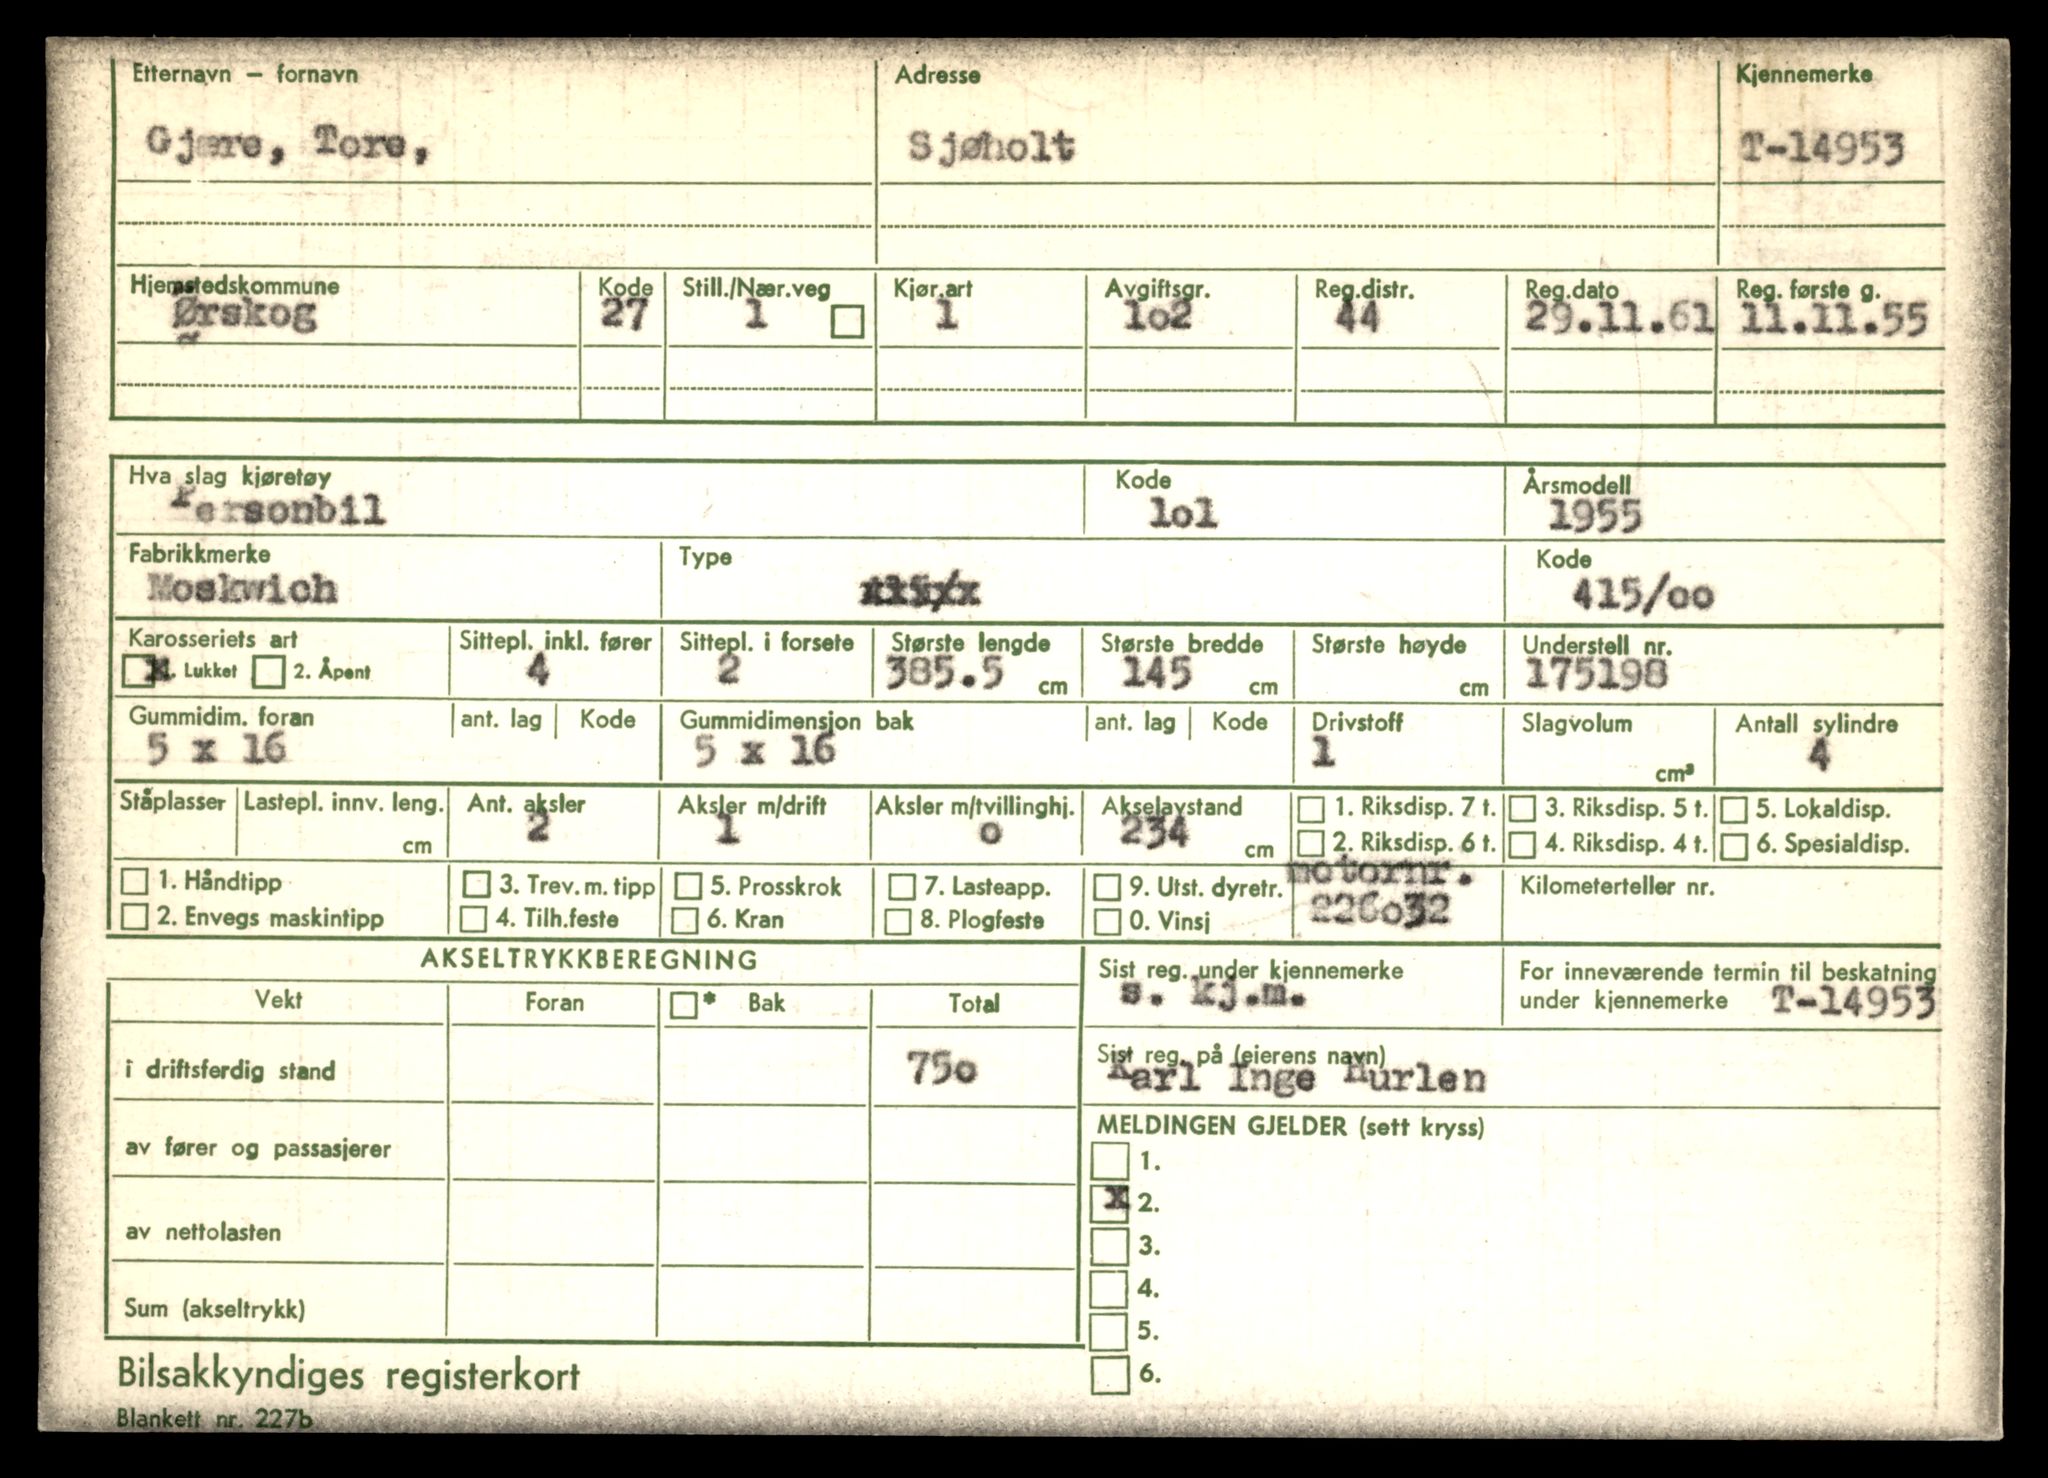 Etternavn – fornavn Adresse Kjennemerke
Gjære, Tore, Sjøholt T-14953
Hjemstedskommune Kode Still./Nær.veg Kjør.art Avgiftsgr. Reg.distr. Reg.dato Reg. første g.
Ørskog 27 1 1 1o2 44 29.11.61 11.11.55
Hva slag kjøretøy Kode Årsmodell
Personbil 1o1 1955
Fabrikkmerke Type Kode
Moskwich 415/oo
Karosseriets art Sittepl. inkl. fører Sittepl. i forsete Største lengde Største bredde Største høyde Understell nr.
x 1. Lukket 2. Åpent 4 2 385.5 cm 145 cm cm 175198
Gummidim. foran ant. lag Kode Gummidimensjon bak ant. lag Kode Drivstoff Slagvolum Antall sylindre
5 x 16 5 x 16 1 cm³ 4
Ståplasser Lastepl. innv. leng. Ant. aksler Aksler m/drift Aksler m/tvillinghj. Akselavstand 1. Riksdisp. 7 t. 3. Riksdisp. 5 t. 5. Lokaldisp.
cm 2 1 o 234 cm 2. Riksdisp. 6 t. 4. Riksdisp. 4 t. 6. Spesialdisp.
1. Håndtipp 3. Trev. m. tipp 5. Prosskrok 7. Lasteapp. 9. Utst. dyretr. motornr. Kilometerteller nr.
2. Envegs maskintipp 4. Tilh.feste 6. Kran 8. Plogfeste 0. Vinsj 226o32
AKSELTRYKKBEREGNING
Vekt Foran * Bak Total
i driftsferdig stand 75o
av fører og passasjerer
av nettolasten
Sum (akseltrykk)
Sist reg. under kjennemerke
s. kj.m.
For inneværende termin til beskatning
under kjennemerke T-14953
Sist reg. på (eierens navn)
Karl Inge Hurlen
MELDINGEN GJELDER (sett kryss)
1.
x 2.
3.
4.
5.
6.
Bilsakkyndiges registerkort
Blankett nr. 227b